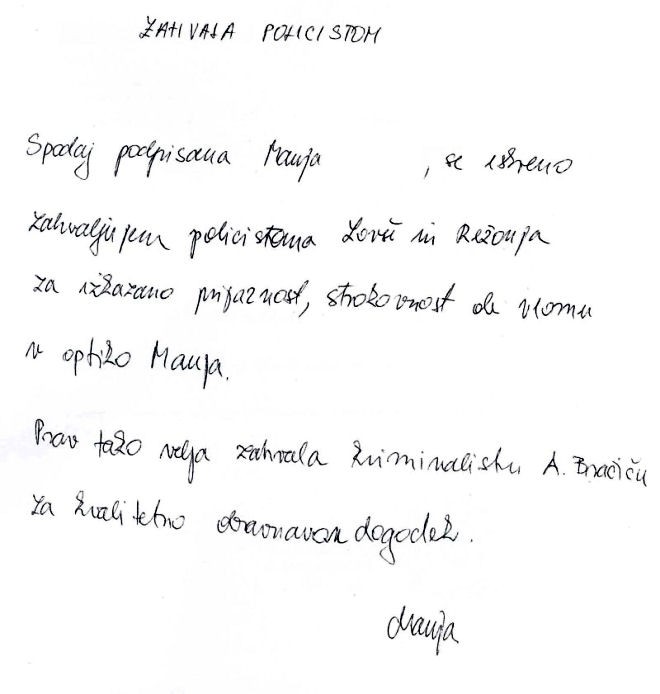 ZAHVALA POLICISTOM
Spodaj podpisana Manja , se iskreno
zahvaljujem policistoma Lovš in Režonja
za izkazano prijaznost, strokovnost ob vlomu
v optiko Manja.
Prav tako velja zahvala kriminalistu A. Bračiču
za kvalitetno obravnavan dogodek.
Manja